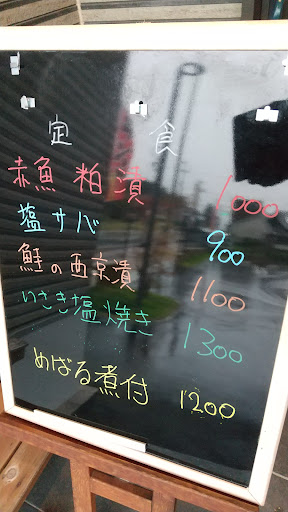 定食
赤魚粕漬 1.000
塩サバ 900
鮭の西京漬 1100
いさき塩焼き 1300
めばる煮付 1200